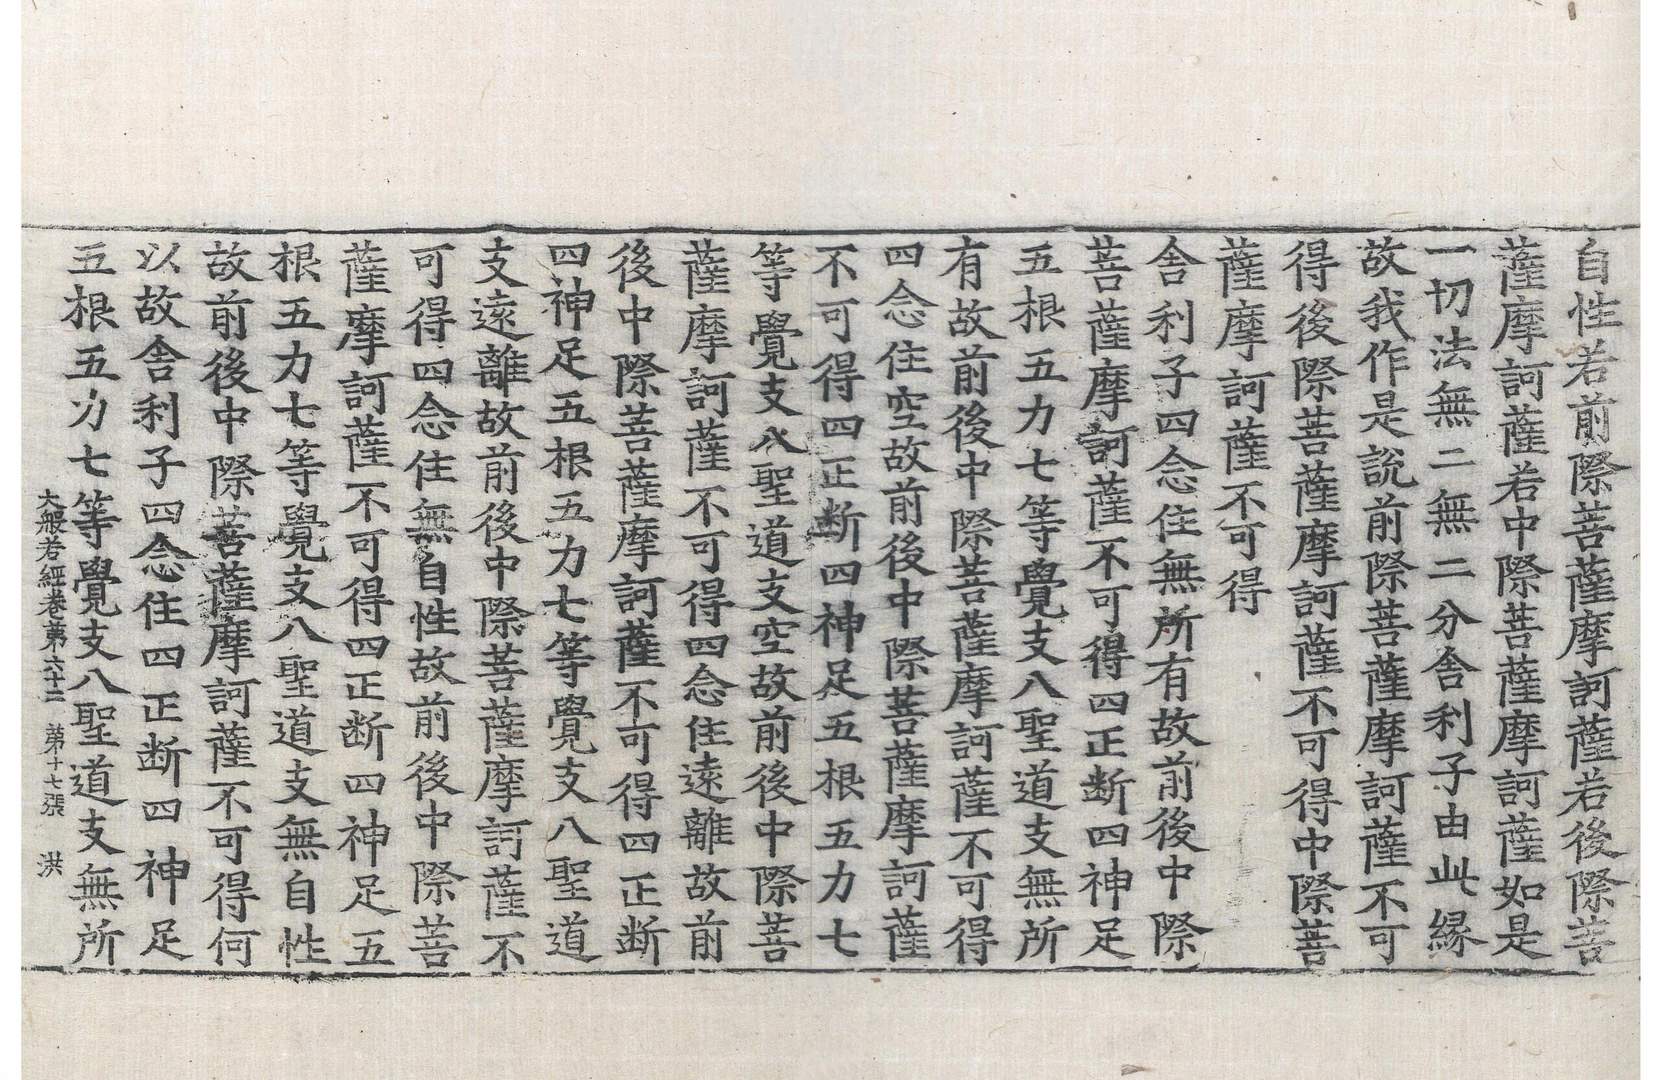 自性若前際菩薩摩訶薩若後際菩
薩摩訶薩若中際菩薩摩訶薩如是
一切法無二無二分舍利子由此縁
故我作是説前際菩薩摩訶薩不可
得後際菩薩摩訶薩不可得中際菩
薩摩訶薩不可得
舎利子四念住無所有故前後中際
菩薩摩訶薩不可得四正断四神足
五根五力七等覺支八聖道支無所
有故前後中際菩薩摩訶薩不可得
四念住空故前後中際菩薩摩訶薩
不可得四正断四神足五根五力七
等覺支八聖道支空故前後中際菩
薩摩訶薩不可得四念住遠離故前
後中際菩薩摩訶薩不可得四正断
四神足五根五力七等覺支八聖道
支遠離故前後中際菩薩摩訶薩不
可得四念住無自性故前後中際菩
薩摩訶薩不可得四正断四神足五
根五力七等覺支八聖道支無自性
故前後中際菩薩摩訶薩不可得何
以故舎利子四念住四正断四神足
五根五力七等覺支八聖道支無所
大般若經卷第六十二 第十七張 洪